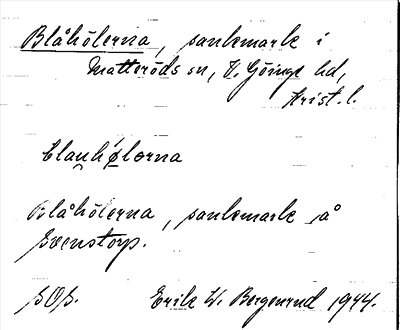 Blåhölerna, sankmark i
Matteröds sn, V. Göinge hd,
Krist. l.
blauhø̄lorna
Blåhölerna, sankmark på
Svenstorp.
SOS. Erik W. Bergenrud 1944.